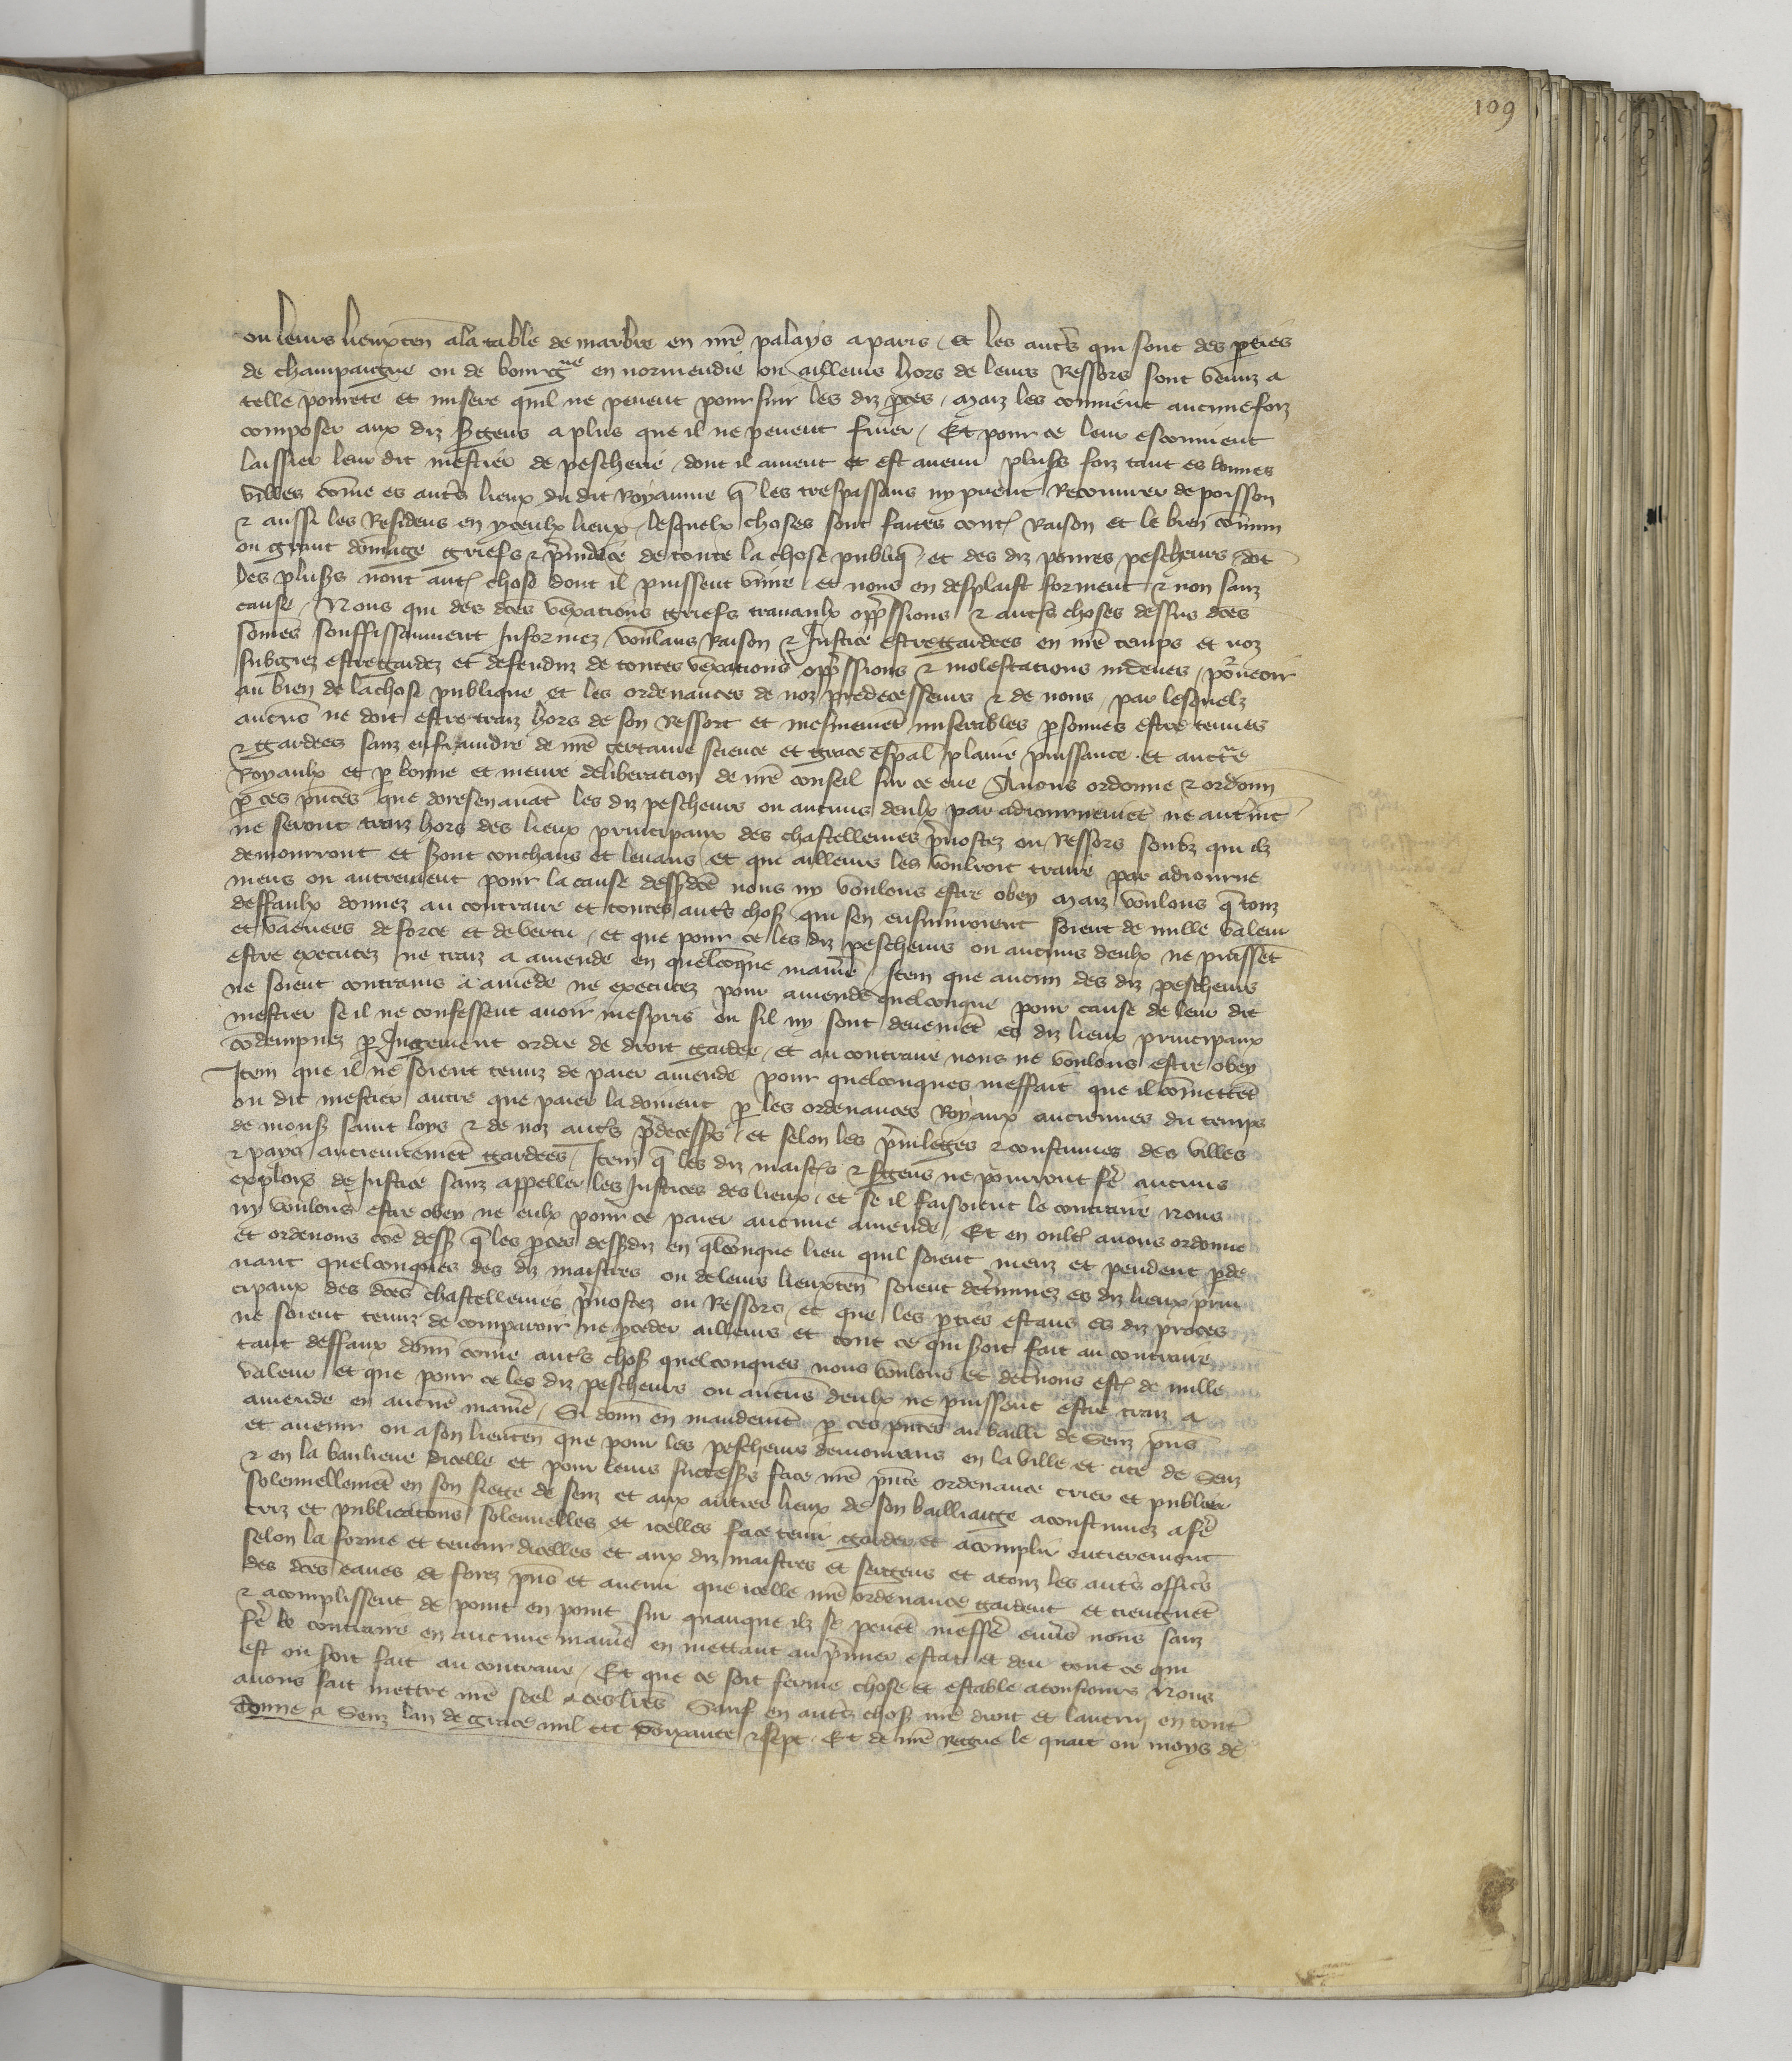 109
ou leurs lieuxten a la table de marbre en nr̃e palays a paris / et les autr̃s qui sont des p̱ties
de champaigne ou de bourgne en normendie ou ailleurs hors de leurs Ressors sont venuz a
telle pourete et misere quil ne peuent poursuir les diz p̱ces / maiz les conuient aucunefoiz
composer aux diz s̃gens a plus que il ne peuent finer / Et pour ce leur esconuient
laissier leur dit mestier de pescherie / dont il auient et est auenu plus̃s foiz tant es bonnes
villes com̃e es autr̃s lieux du dit Royaume q̃ les trespassans ny peuẽt Recouurer de poisson
⁊ aussi les Residens en yceulx lieux / lesquelx choses sont faites contr̃ Raison et le bien com̃un
ou grant dom̃age griefs ⁊ p̃iudice de toute la chose publiq̃ / et des diz poures pescheurs / dõt
les plus̃s nont autr̃ chose dont il puissent viure / et nous en desplaist forment ⁊ non sanz
cause / Nous qui des dc̃es vexations griefs trauaulx opp̃ssions ⁊ autr̃s choses dessus dc̃es
som̃es souffisamment Informez / voulans Raison ⁊ Justice estre gardees en nr̃e temps et noz
subgiez estre gardez et defenduz de toutes vexations opp̃ssions ⁊ molestations indeues / pourueoir
au bien de la chose publique et les ordenances de noz predecesseurs ⁊ de nous / par lesquelz
aucuns ne doit estre traiz hors de son Ressort et mesmemẽt miserables p̱sonnes estre tenues
⁊ gardees sanz enfraindre de nr̃e certaine science et grace esp̃al plaine puissance et aucte
Royaulx et p̱ bonne et meure deliberation de nr̃e conseil sur ce eue Auons ordonne ⁊ ordonñ
p̱ ces p̃ntes que doresenauãt les diz pescheurs ou aucuns deulx par adiournemẽt ne autrem̃t
ne seront traiz hors des lieux principaux des chastellenies p̃uostez ou Ressors soubz qui ilz
demourront et s̃ont couchans et leuans / et qui ailleurs les vouldroit traire par adiourne
mens ou autrement pour la cause dess̃dc̃e nous ny voulons estre obey maiz voulons q̃ touz
deffaulx donnez au contraire et toutes autr̃s chos̃ qui sen ensuiuroient soient de nulle valeur
et vacuees de force et de vertu / et que pour ce les diz pescheurs ou aucuns deulx ne puissẽt
estre executez ne traiz a amende en quelconque mañe / Item que aucun des diz pescheurs
ne soient contrains a amẽde ne executez pour amende quelconque pour cause de leur dit
mestier se il ne confessent auoir mespris ou sil ny sont deuemẽt es diz lieux principaux
cõdempnez p̱ Jugement ordre de droit gardee / et au contraire nous ne voulons estre obey
Item que il ne soient tenuz de paier amende pour quelconques meffait que il com̃ettẽt
ou dit mestier autre que paier la doiuent p̱ les ordenances Royaux anciennes du temps
de mons̃ saint loys ⁊ de noz autr̃s p̃decess̃s / et selon les p̃uileges ⁊ coustumes des villes
⁊ pays anciennemẽt gardees / Item q̃ les diz maistr̃s ⁊ s̃gens ne pourront fẽ aucuns
explois de Justice sanz appeller les Justices des lieux / et se il faisoient le contraire nous
ny voulons estre obey ne eulx pour ce paier aucune amende / Et en oultr̃ auons ordonne
et ordenons cõe dess̃ q̃ les p̱ces dess̃diz en q̃lconque lieu quil soient meuz et pendent p̱de
uant quelconques des diz maistres ou de leurs lieuxteñ soient det̃minez es diz lieux prin
cipaux des dc̃es chastellenies p̃uostez ou Ressors / et que les p̱ties estans es diz proces
ne soient tenuz de comparoir ne p̱ceder ailleurs et tout ce qui s̃oit fait au contraire
tant deffaux donñ com̃e autr̃s chos̃ quelconques nous voulons et dec̃nons estr̃ de nulle
valeur et que pour ce les diz pescheurs ou aucũs deulx ne puissent estre traiz a
amende en aucũe mañe / Si donñ en mandem̃t p̱ ces p̃ntes au bailli de Senz p̃ns
et auenir ou a son lieuteñ que pour les pescheurs demourans en la ville et cite de Senz
⁊ en la banlieue dicelle et pour leurs success̃s face nr̃e p̃nte ordenance crier et publier
solennellemẽt en son siette de senz et aux autres lieux de son bailliage acoustumez a fẽ
criz et publicatons̃ solennelles et icelles face tenir garder et acomplir entierement
selon la forme et teneur dicelles et aux diz maistres et sergens et a touz les autr̃s offic̃s
des dc̃es eaues et forez p̃ns et auenir que icelle nr̃e ordenance gardent et tiengnẽt
⁊ acomplissent de point en point sur quanque ilz se peuẽt meffẽ enũs nous sanz
fẽ le contraire en aucune mañe en mettant au p̃mier estat et deu tout ce qui
est ou soit fait au contraire / Et que ce soit ferme chose et estable a tousiours Nous
auons fait mettre nr̃e seel a ces lr̃es Sauf en autr̃s chos̃ nr̃e droit et lautruy en tout
Donne a Senz lan de grace mil ccc soixante ⁊ sept / Et de nr̃e Regne le quart ou moys de